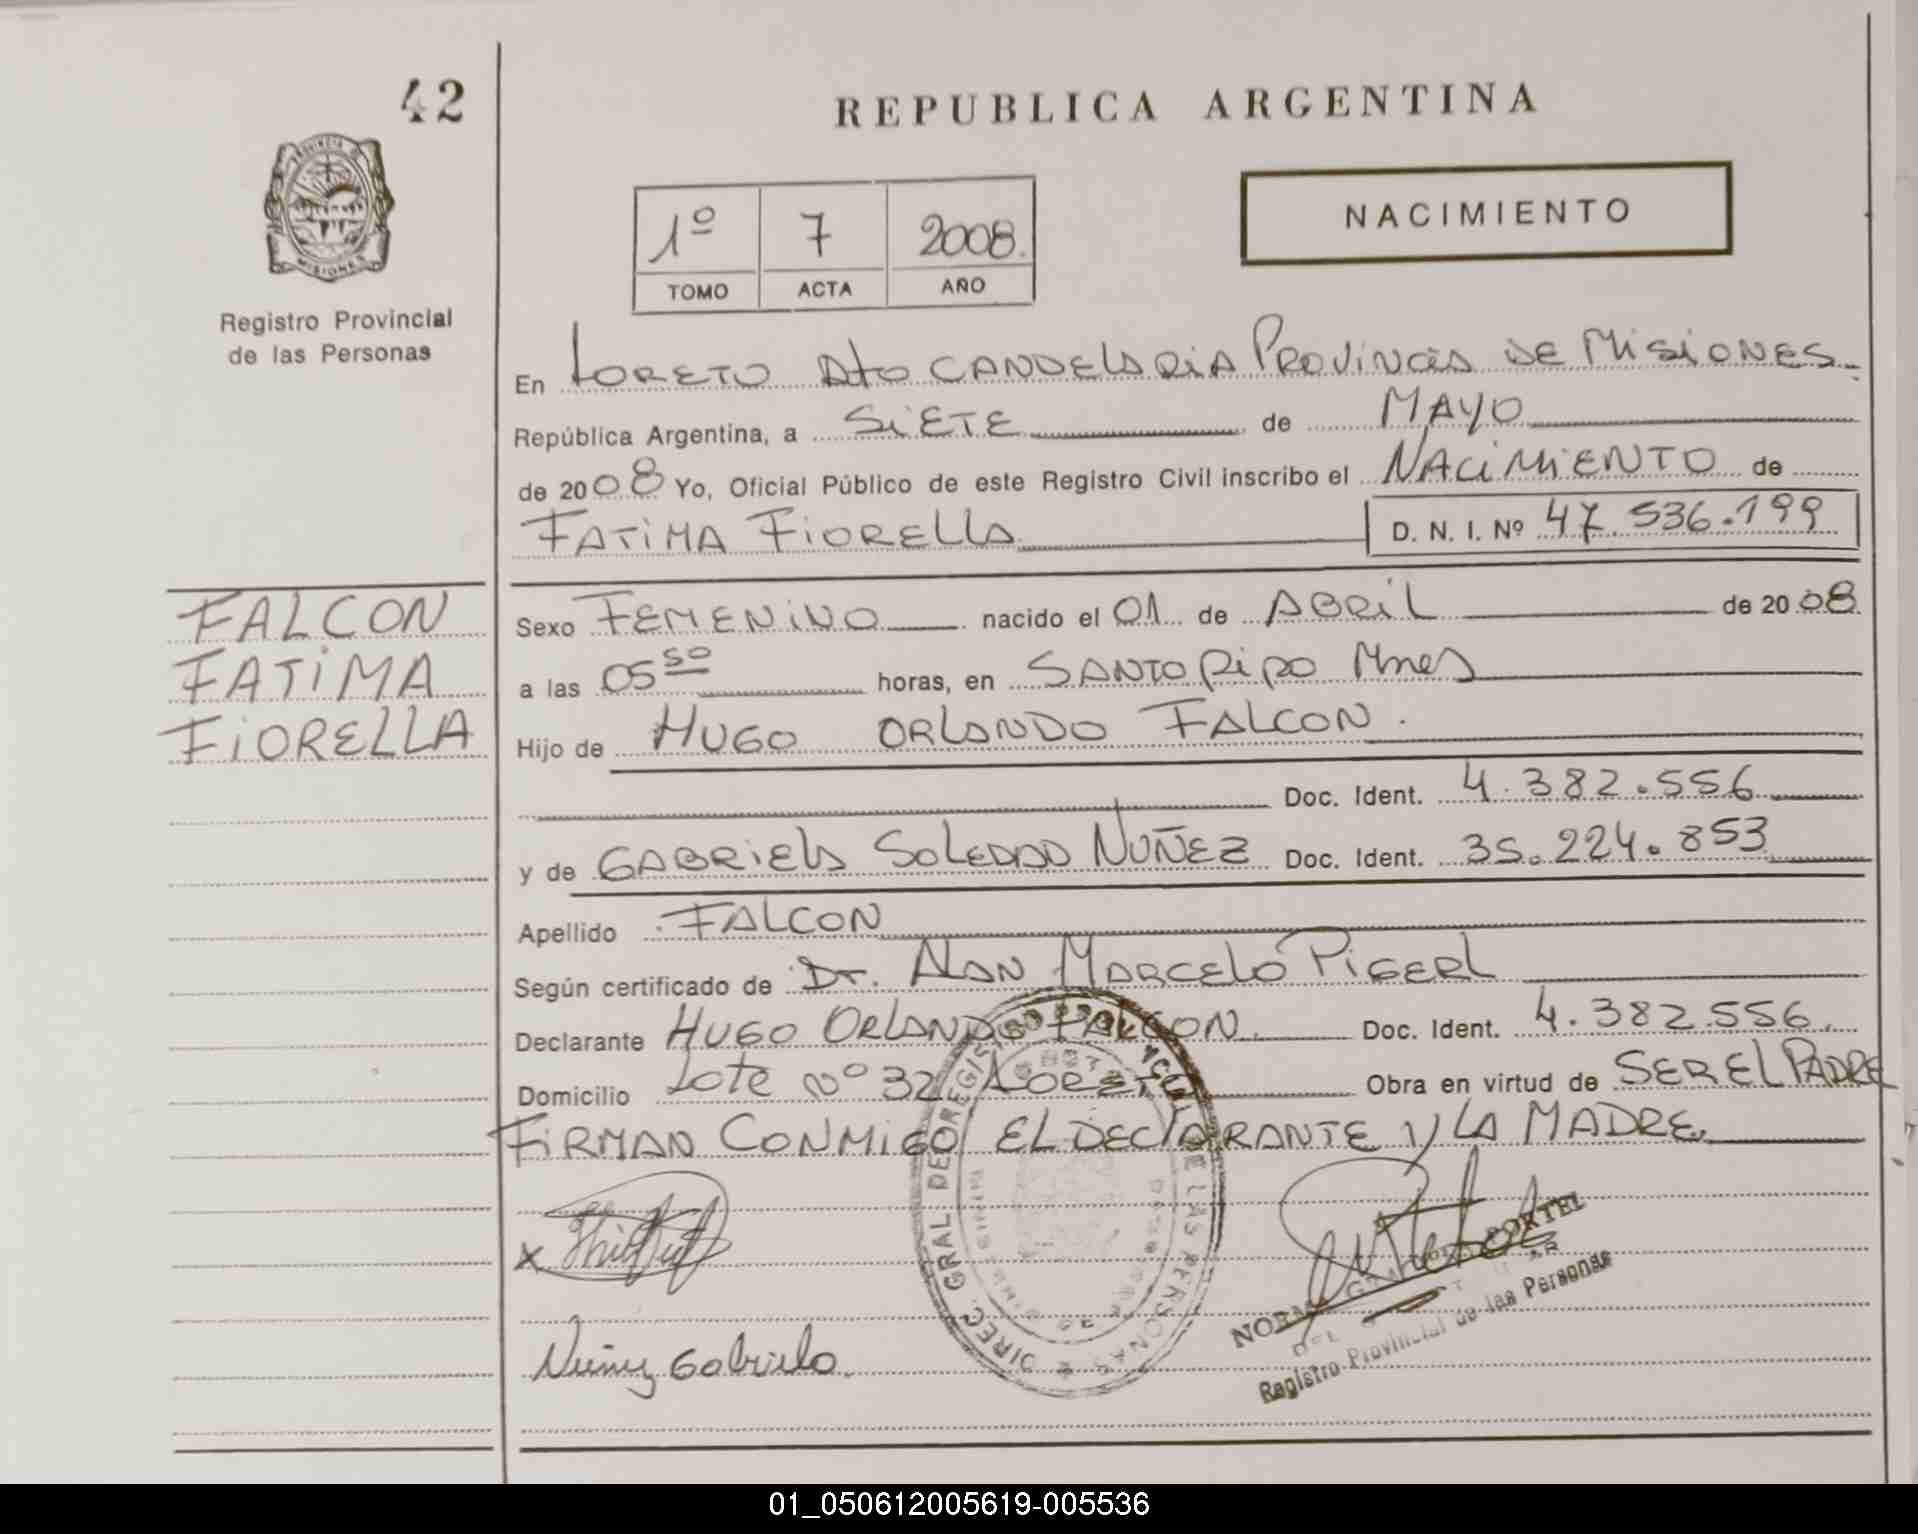 42
REPUBLICA ARGENTINA
PROVINCIA DE
MISIONES
Registro Provincial
de las Personas
1º 7 2008.
TOMO ACTA AÑO
NACIMIENTO
En LORETO Dto CANDELARIA PROVINCIA DE MISIONES
República Argentina, a SIETE de MAYO
de 2008 Yo, Oficial Público de este Registro Civil inscribo el NACIMIENTO de
FATIMA FIORELLA D. N. I. Nº 47.536.199
FALCON
FATIMA
FIORELLA
Sexo FEMENINO nacido el 01 de ABRIL de 2008
a las 05 50 horas, en SANTO PIPO Mnes
Hijo de HUGO ORLANDO FALCON.
Doc. Ident. 4.382.556
y de GABRIELA SOLEDAD NUÑEZ Doc. Ident. 35.224.853
Apellido FALCON
Según certificado de Dr. ALAN MARCELO PIGERL
Declarante HUGO ORLANDO FALCON. Doc. Ident. 4.382.556.
Domicilio Lote Nº 32 LORETO Obra en virtud de SER EL PADRE
FIRMAN CONMIGO EL DECLARANTE Y LA MADRE.
X
Nuñez Gabriela.
DIREC. GRAL DE REGISTRO DE LAS PERSONAS
PORTEL
Registro Provincial de las Personas
01_050612005619-005536